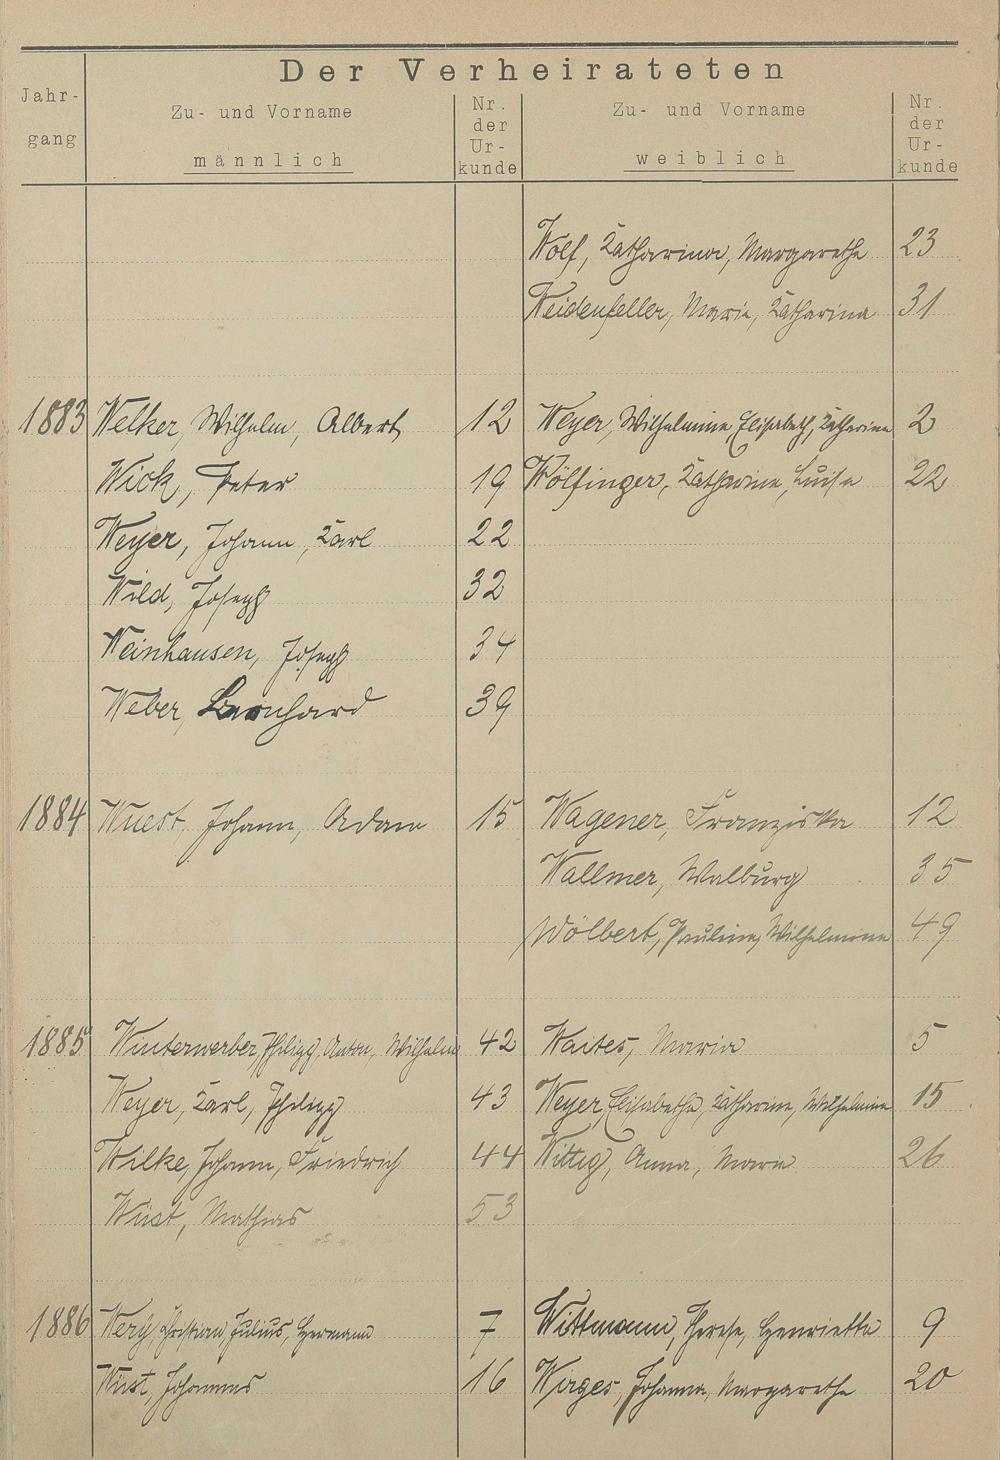 Der Verheirateten
Jahr-
gang
Zu- und Vorname
männlich
Nr.
der
Ur-
kunde
Zu- und Vorname
weiblich
Nr.
der
Ur-
kunde
Wolf, Katharina, Margarethe 23
Weidenfeller, Maria, Katharina 31
1883 Welker, Wilhelm, Albert 12 Weyer, Wilhelmine, Elisabeth, Katharina 2
Wick, Peter 19 Wölfinger, Katharine, Luise 22
Weyer, Johann, Karl 22
Wild, Joseph 32
Weinhausen, Joseph 34
Weber, Bernhard 39
1884 Wuest, Johann, Adam 15 Wagener, Franziska 12
Wallmer, Walburg 35
Wölbert, Pauline, Wilhelmine 49
1885 Winterwerber, Philipp, Anton, Wilhelm 42 Waites, Maria 5
Weyer, Karl, Philipp 43 Weyer, Elisabetha, Katharine, Wilhelmine 15
Wilke, Johann, Friedrich 44 Wittig, Anna, Maria 26
Wüst, Mathias 53
1886 Wery, Christian, Julius, Hermann 7 Wittmann, Therese, Henriette 9
Wüst, Johannes 16 Wirges, Johanna, Margarethe 20